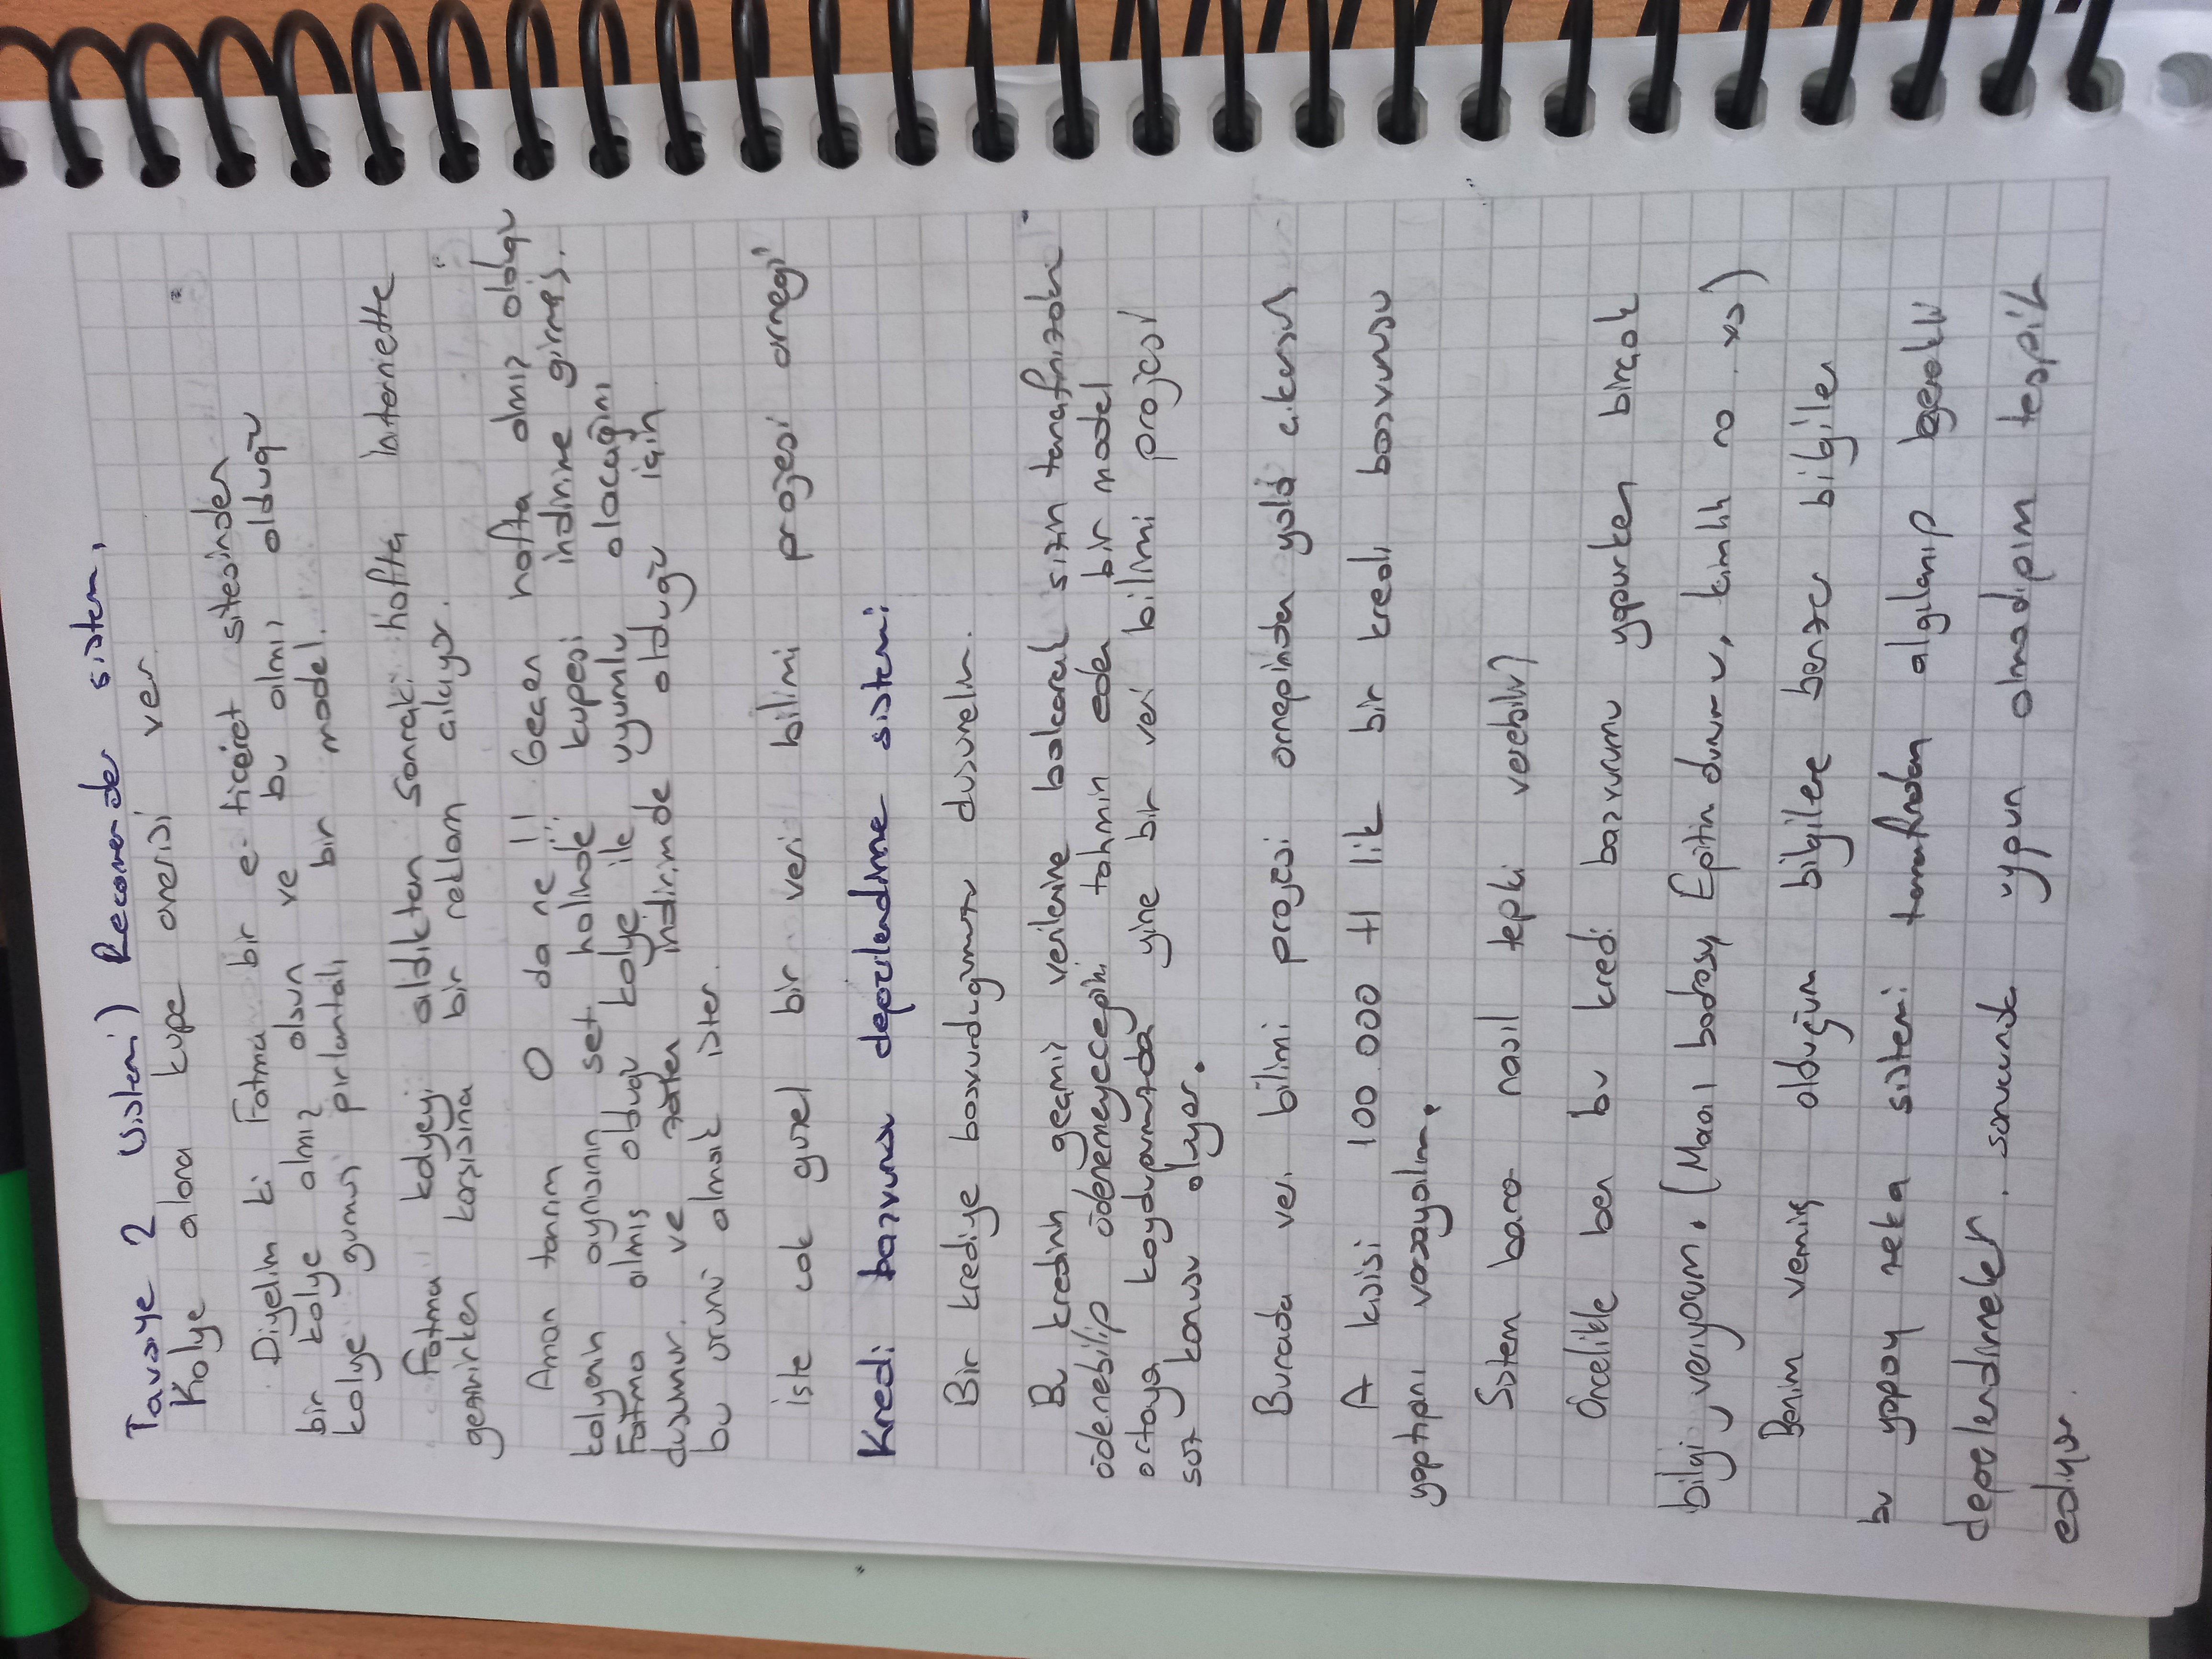 Tavsiye 2 (Sistemi) Recomender sistem,
Kolye alana kupe onerisi ver
Diyelim ki Fatma bir e-ticaret sitesinden
bir kolye almış olsun ve bu almış olduğu
kolye gumuş pırlantalı bir model.
Fatma kolyeyi aldıktan sonraki hafta internette
gezinirken karşısına bir reklam çıkıyor.
Aman tanrım O da ne!! Geçen hafta almış olduğu
kolyenin aynısının set halinde kupesi indirime girmiş.
Fatma almış olduğu kolye ile uyumlu olacağını
duşunur. ve zaten indirimde olduğu için
bu urunu almak ister.
işte cok guzel bir veri bilimi projesi ornegi
Kredi başvurusu değerlendirme sistemi
Bir krediye başvurduğumuzu duşunelim.
Bu kredinin geçmiş verilerine bakarak sizin tarafınızdan
ödenebilip ödenemeyeceğini tahmin eden bir model
ortaya koyduğumuzda yine bir veri bilimi projesi
soz konusu oluyor.
Burada veri bilimi projesi orneğinden yola çıkarsak
A kişisi 100.000 tl lik bir kredi başvurusu
yaptığını varsayalım.
Sistem bana nasıl tepki verebilir?
Öncelikle ben bu kredi başvurumu yapurken birçok
bilgi veriyorum. (Maaş bodrosu, Eğitim durumu, kimlik no vs)
Benim vermiş olduğum bilgilere benzer bilgiler
bu yapay zeka sistemi tarafından algılanıp gerekli
değerlendirmeler sonucunda uygun olmadığım tespit
ediyor.